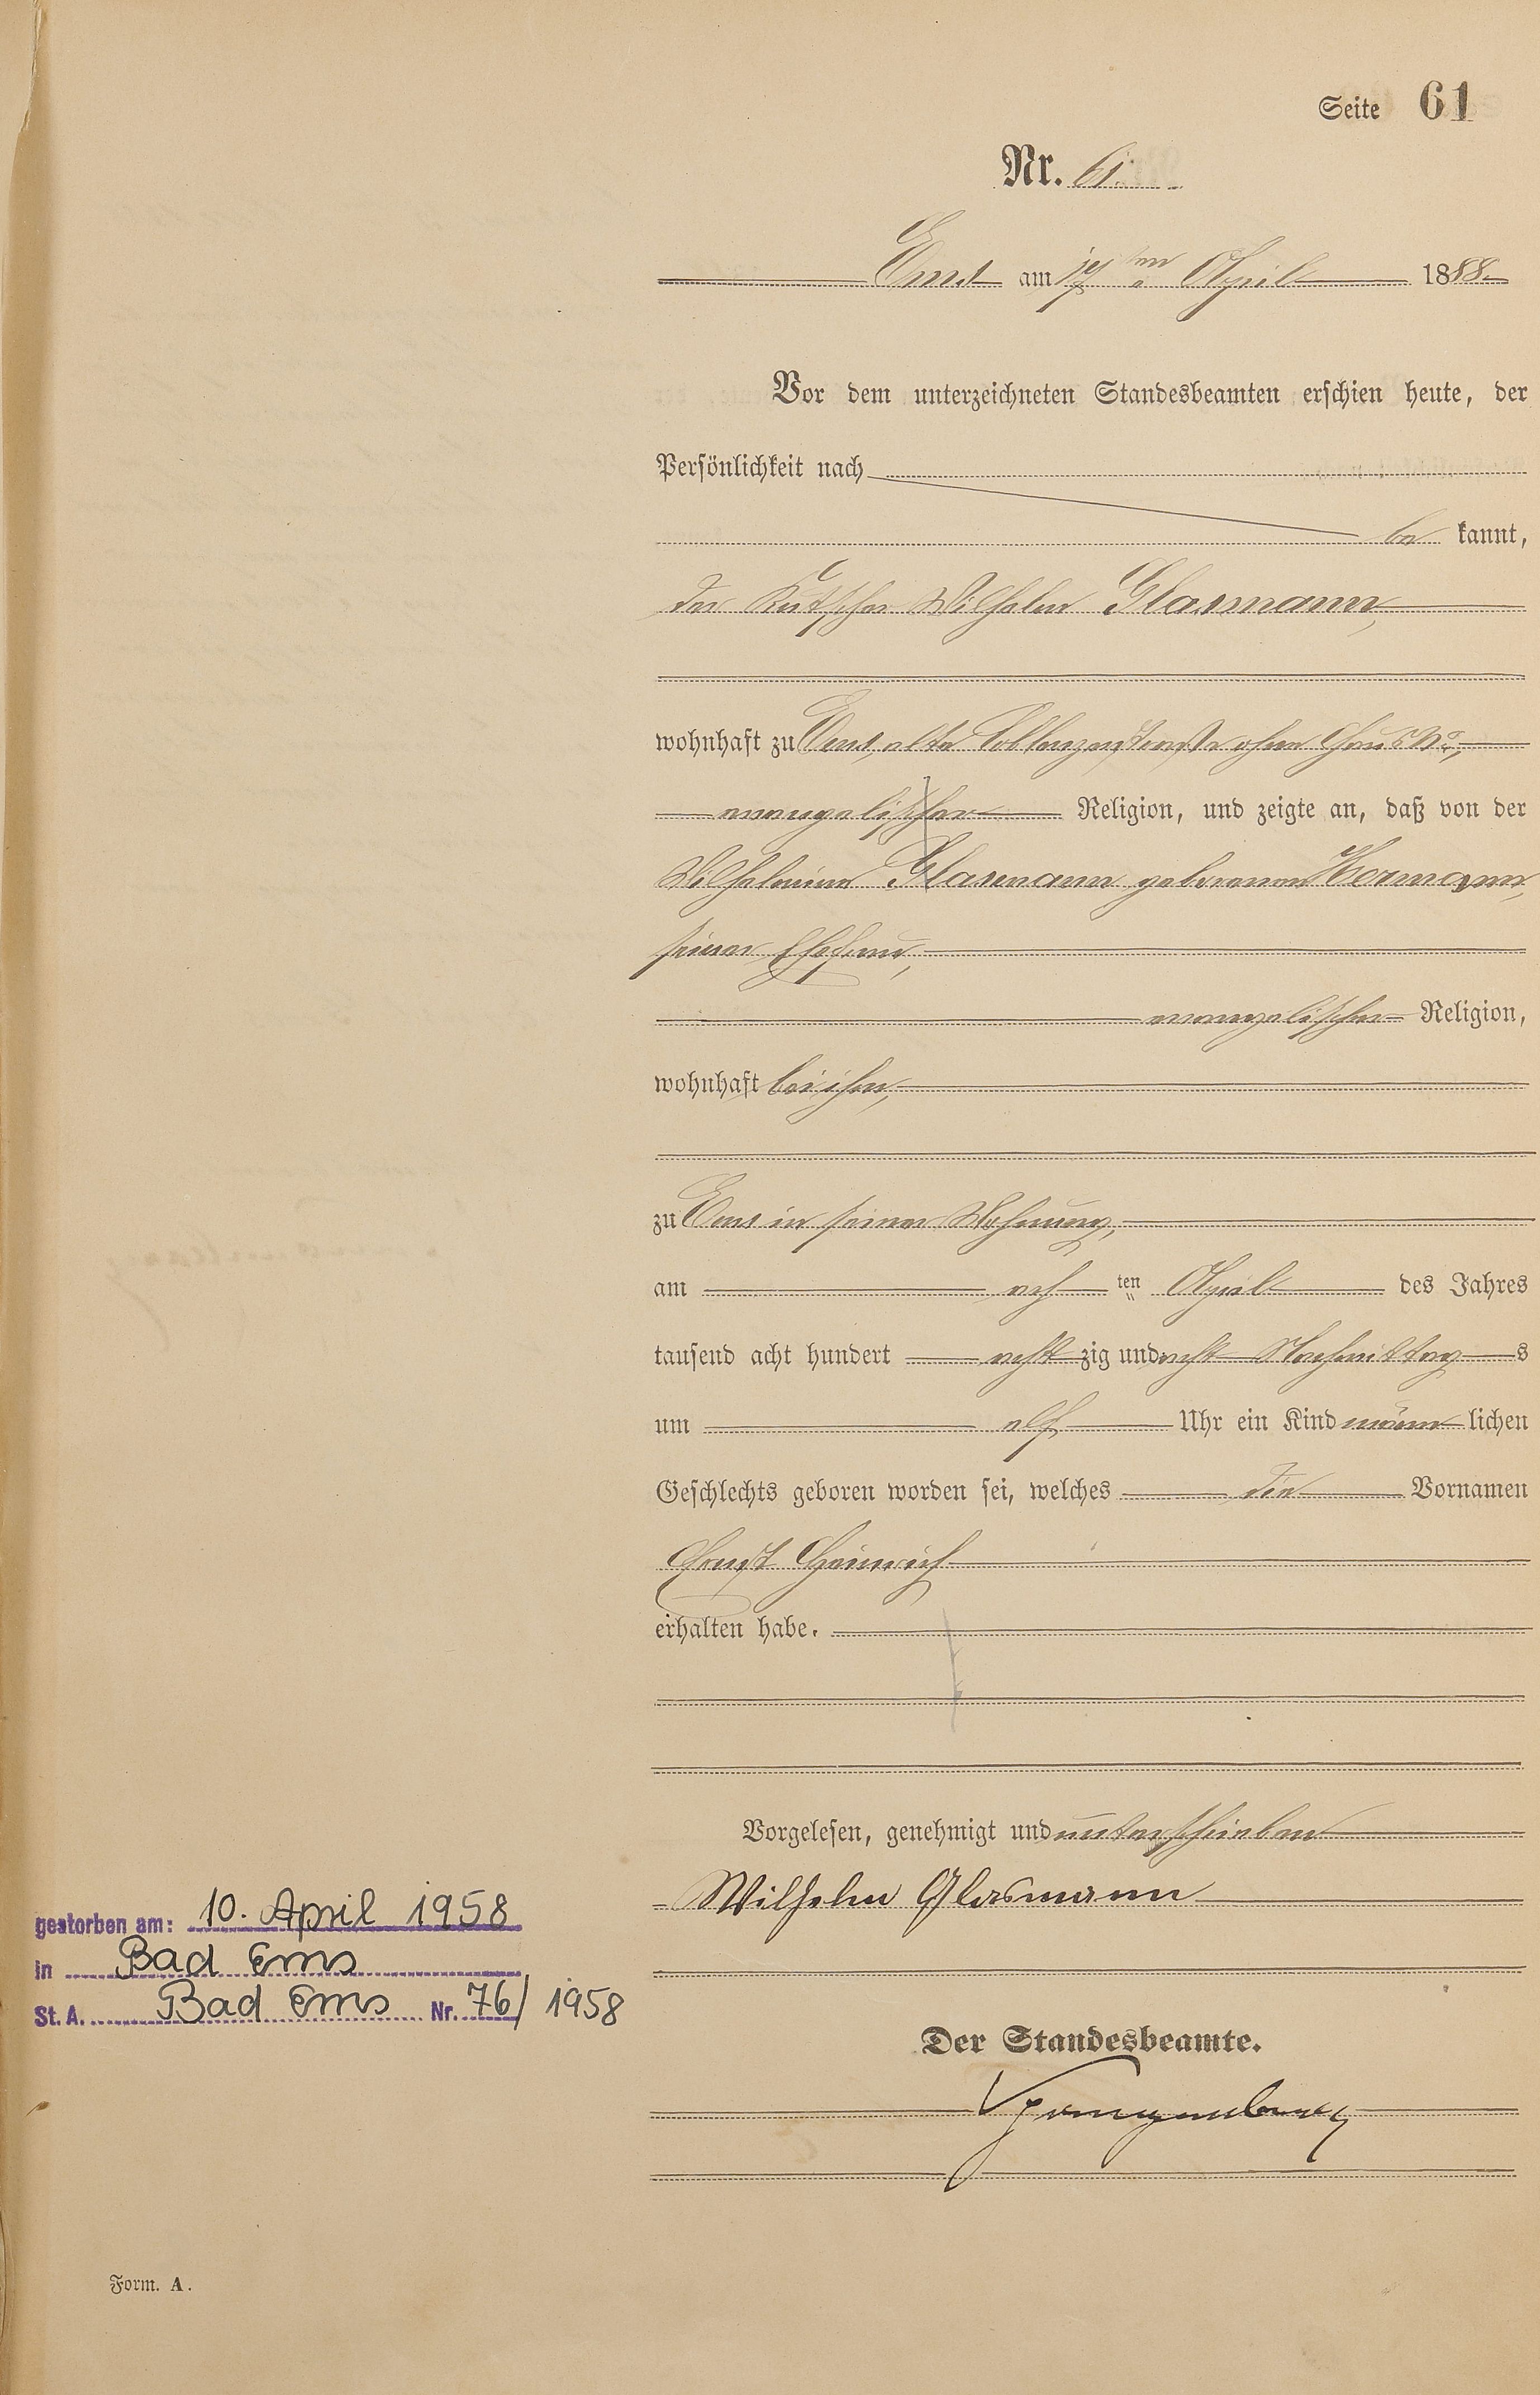 Seite 61
Nr. 61.
Ems am 17ten April 1888.
Vor dem unterzeichneten Standesbeamten erschien heute, der
Persönlichkeit nach
be kannt,
der Kutscher Wilhelm Glasmann,
wohnhaft zu Ems, alte Coblenzerstraße ohne Haus No.,
evangelischer Religion, und zeigte an, daß von der
Wilhelmine Glasmann geborenen Hermann,
seiner Ehefrau,
evangelischer Religion,
wohnhaft bei ihm,
zu Ems in seiner Wohnung,
am ach ten April des Jahres
tausend acht hundert acht zig und acht Nachmittag s
um elf Uhr ein Kind männ lichen
Geschlechts geboren worden sei, welches die Vornamen
Ernst Heinrich
erhalten habe.
Vorgelesen, genehmigt und unterschrieben
Wilhelm Glasmann
gestorben am: 10. April 1958
in Bad Ems
St. A. Bad Ems Nr. 76/1958
Der Standesbeamte.
Form. A.